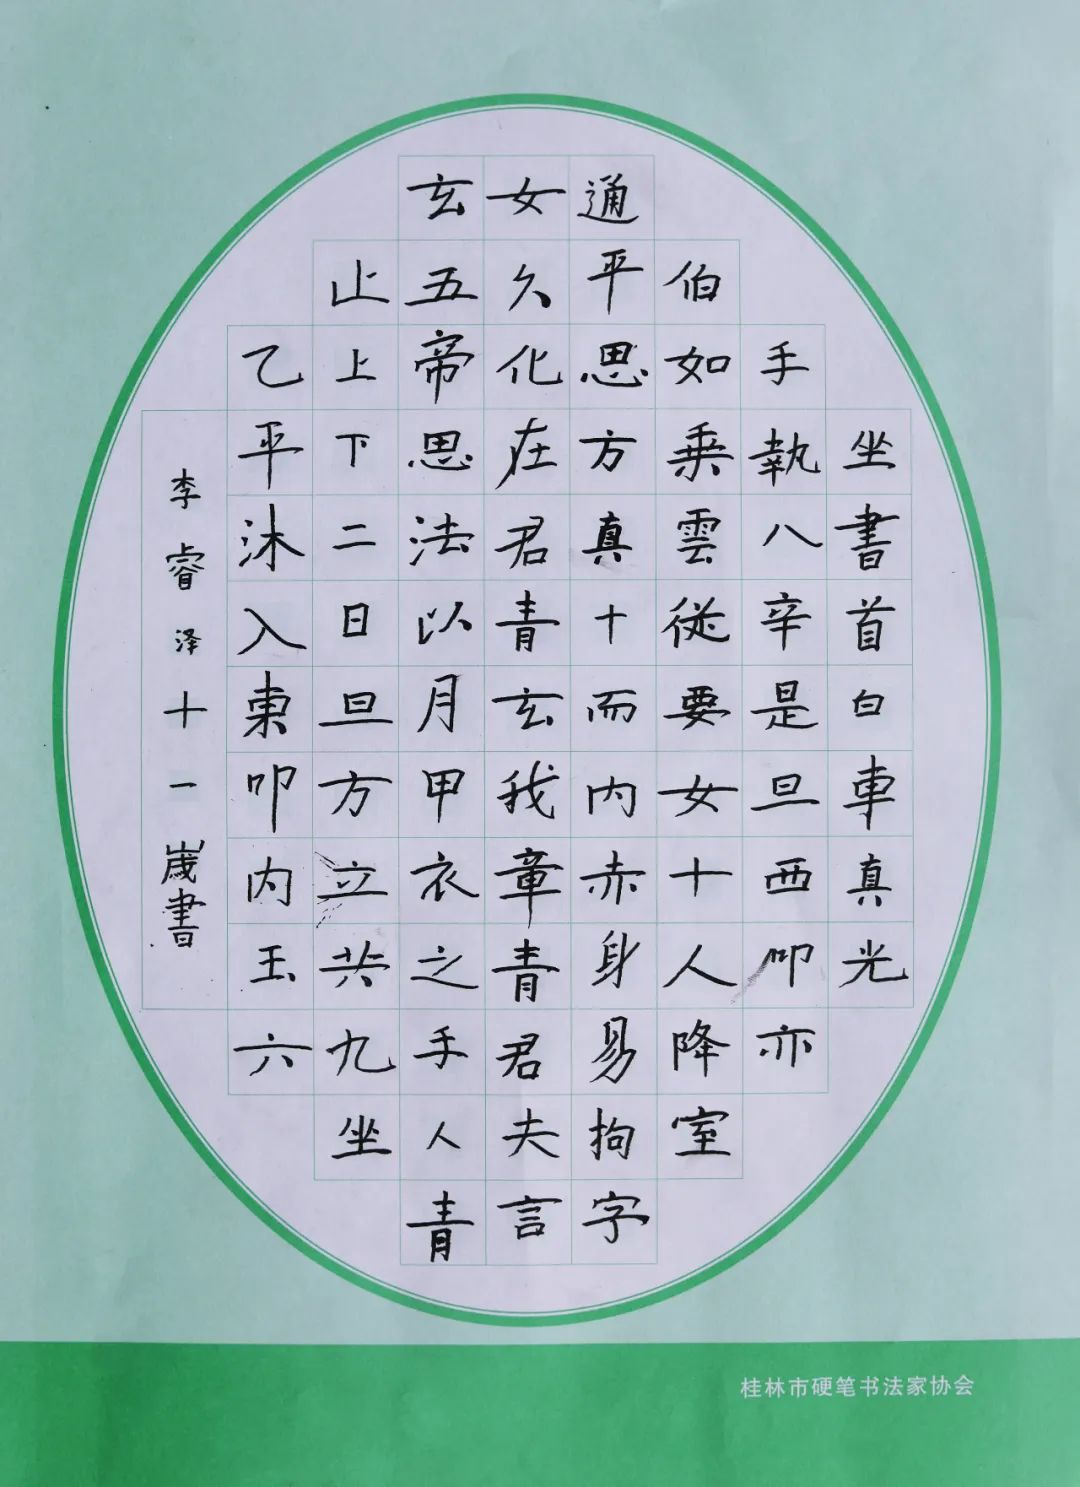 坐書首白車真光
手執八辛是旦西卬亦
伯如乘雲從要女十人降室
通平思方真十而内赤身易拘字
女久化在君青玄我章青君夫言
玄五帝思法以月甲衣之手人青
止上下二日旦方立共九坐
乙平沐入東卬内玉六
李睿泽十一歲書
桂林市硬笔书法家协会